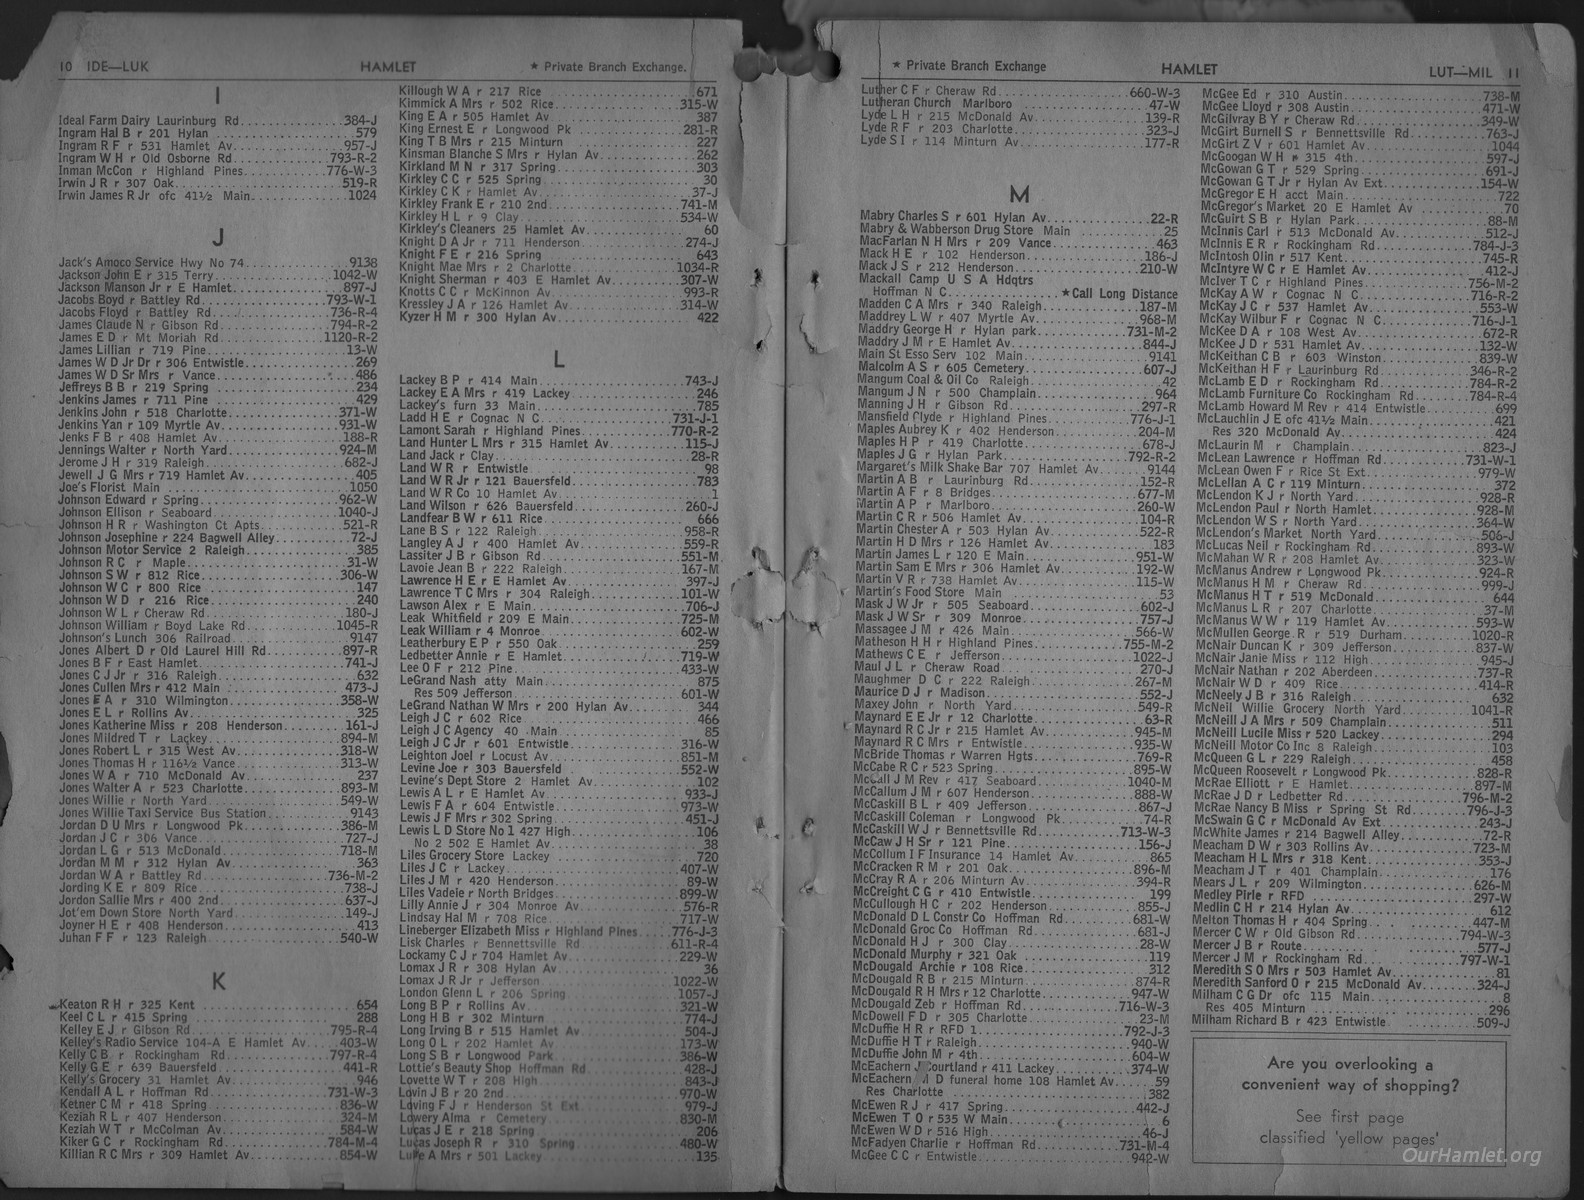 10 IDE—LUK HAMLET ★ Private Branch Exchange.
I
Ideal Farm Dairy Laurinburg Rd 384-J
Ingram Hal B r 201 Hylan 579
Ingram R F r 531 Hamlet Av 957-J
Ingram W H r Old Osborne Rd 793-R-2
Inman McCon r Highland Pines 776-W-3
Irwin J R r 307 Oak 519-R
Irwin James R Jr ofc 41½ Main 1024
J
Jack's Amoco Service Hwy No 74 9138
Jackson John E r 315 Terry 1042-W
Jackson Manson Jr r E Hamlet 897-J
Jacobs Boyd r Battley Rd 793-W-1
Jacobs Floyd r Battley Rd 736-R-4
James Claude N r Gibson Rd 794-R-2
James E D r Mt Moriah Rd 1120-R-2
James Lillian r 719 Pine 13-W
James W D Jr Dr r 306 Entwistle 269
James W D Sr Mrs r Vance 486
Jeffreys B B r 219 Spring 234
Jenkins James r 711 Pine 429
Jenkins John r 518 Charlotte 371-W
Jenkins Yan r 109 Myrtle Av 931-W
Jenks F B r 408 Hamlet Av 188-R
Jennings Walter r North Yard 924-M
Jerome J H r 319 Raleigh 682-J
Jewell J G Mrs r 719 Hamlet Av 405
Joe's Florist Main 1050
Johnson Edward r Spring 962-W
Johnson Ellison r Seaboard 1040-J
Johnson H R r Washington Ct Apts 521-R
Johnson Josephine r 224 Bagwell Alley 72-J
Johnson Motor Service 2 Raleigh 385
Johnson R C r Maple 31-W
Johnson S W r 812 Rice 306-W
Johnson W C r 800 Rice 147
Johnson W D r 216 Rice 240
Johnson W L r Cheraw Rd 180-J
Johnson William r Boyd Lake Rd 1045-R
Johnson's Lunch 306 Railroad 9147
Jones Albert D r Old Laurel Hill Rd 897-R
Jones B F r East Hamlet 741-J
Jones C J Jr r 316 Raleigh 632
Jones Cullen Mrs r 412 Main 473-J
Jones E A r 310 Wilmington 358-W
Jones E L r Rollins Av 325
Jones Katherine Miss r 208 Henderson 161-J
Jones Mildred T r Lackey 894-M
Jones Robert L r 315 West Av 318-W
Jones Thomas H r 116½ Vance 313-W
Jones W A r 710 McDonald Av 237
Jones Walter A r 523 Charlotte 893-M
Jones Willie r North Yard 549-W
Jones Willie Taxi Service Bus Station 9143
Jordan D U Mrs r Longwood Pk 386-M
Jordan J C r 306 Vance 727-J
Jordan L G r 513 McDonald 718-M
Jordan M M r 312 Hylan Av 363
Jordan W A r Battley Rd 736-M-2
Jording K E r 809 Rice 738-J
Jordon Sallie Mrs r 400 2nd 637-J
Jot'em Down Store North Yard 149-J
Joyner H E r 408 Henderson 413
Juhan F F r 123 Raleigh 540-W
K
Keaton R H r 325 Kent 654
Keel C L r 415 Spring 288
Kelley E J r Gibson Rd 795-R-4
Kelley's Radio Service 104-A E Hamlet Av 403-W
Kelly C B r Rockingham Rd 797-R-4
Kelly G E r 639 Bauersfeld 441-R
Kelly's Grocery 31 Hamlet Av 946
Kendall A L r Hoffman Rd 731-W-3
Ketner C M r 418 Spring 836-W
Keziah R L r 407 Henderson 324-M
Keziah W T r McColman Av 584-W
Kiker G C r Rockingham Rd 784-M-4
Killian R C Mrs r 309 Hamlet Av 854-W
Killough W A r 217 Rice 671
Kimmick A Mrs r 502 Rice 315-W
King E A r 505 Hamlet Av 387
King Ernest E r Longwood Pk 281-R
King T B Mrs r 215 Minturn 227
Kinsman Blanche S Mrs r Hylan Av 262
Kirkland M N r 317 Spring 303
Kirkley C C r 525 Spring 30
Kirkley C K r Hamlet Av 37-J
Kirkley Frank E r 210 2nd 741-M
Kirkley H L r 9 Clay 534-W
Kirkley's Cleaners 25 Hamlet Av 60
Knight D A Jr r 711 Henderson 274-J
Knight F E r 216 Spring 643
Knight Mae Mrs r 2 Charlotte 1034-R
Knight Sherman r 403 E Hamlet Av 307-W
Knotts C C r McKinnon Av 993-R
Kressley J A r 126 Hamlet Av 314-W
Kyzer H M r 300 Hylan Av 422
L
Lackey B P r 414 Main 743-J
Lackey E A Mrs r 419 Lackey 246
Lackey's furn 33 Main 785
Ladd H E r Cognac N C 731-J-1
Lamont Sarah r Highland Pines 770-R-2
Land Hunter L Mrs r 315 Hamlet Av 115-J
Land Jack r Clay 28-R
Land W R r Entwistle 98
Land W R Jr r 121 Bauersfeld 783
Land W R Co 10 Hamlet Av 1
Land Wilson r 626 Bauersfeld 260-J
Landfear B W r 611 Rice 666
Lane B S r 122 Raleigh 958-R
Langley A J r 400 Hamlet Av 559-R
Lassiter J B r Gibson Rd 551-M
Lavoie Jean B r 222 Raleigh 167-M
Lawrence H E r E Hamlet Av 397-J
Lawrence T C Mrs r 304 Raleigh 101-W
Lawson Alex r E Main 706-J
Leak Whitfield r 209 E Main 725-M
Leak William r 4 Monroe 602-W
Leatherbury E P r 550 Oak 259
Ledbetter Annie r E Hamlet 719-W
Lee O F r 212 Pine 433-W
LeGrand Nash atty Main 875
Res 509 Jefferson 601-W
LeGrand Nathan W Mrs r 200 Hylan Av 344
Leigh J C r 602 Rice 466
Leigh J C Agency 40 Main 85
Leigh J C Jr r 601 Entwistle 316-W
Leighton Joel r Locust Av 851-M
Levine Joe r 303 Bauersfeld 552-W
Levine's Dept Store 2 Hamlet Av 102
Lewis A L r E Hamlet Av 933-J
Lewis F A r 604 Entwistle 973-W
Lewis J F Mrs r 302 Spring 451-J
Lewis L D Store No 1 427 High 106
No 2 502 E Hamlet Av 38
Liles Grocery Store Lackey 720
Liles J C r Lackey 407-W
Liles J M r 420 Henderson 89-W
Liles Vadeie r North Bridges 899-W
Lilly Annie J r 304 Monroe Av 576-R
Lindsay Hal M r 708 Rice 717-W
Lineberger Elizabeth Miss r Highland Pines 776-J-3
Lisk Charles r Bennettsville Rd 611-R-4
Lockamy C J r 704 Hamlet Av 229-W
Lomax J R r 308 Hylan Av 36
Lomax J R Jr r Jefferson 1022-W
London Glenn L r 206 Spring 1057-J
Long B P r Rollins Av 321-W
Long H B r 302 Minturn 774-J
Long Irving B r 515 Hamlet Av 504-J
Long O L r 202 Hamlet Av 173-W
Long S B r Longwood Park 386-W
Lottie's Beauty Shop Hoffman Rd 428-J
Lovette W T r 208 High 843-J
Lovin J B r 20 2nd 970-W
Loving F J r Henderson St Ext 979-J
Lowery Alma r Cemetery 830-M
Lucas J E r 218 Spring 206
Lucas Joseph R r 310 Spring 480-W
Luke A Mrs r 501 Lackey 135
★ Private Branch Exchange HAMLET LUT—MIL 11
Luther C F r Cheraw Rd 660-W-3
Lutheran Church Marlboro 47-W
Lyde L H r 215 McDonald Av 139-R
Lyde R F r 203 Charlotte 323-J
Lyde S I r 114 Minturn Av 177-R
M
Mabry Charles S r 601 Hylan Av 22-R
Mabry & Wabberson Drug Store Main 25
MacFarlan N H Mrs r 209 Vance 463
Mack H E r 102 Henderson 186-J
Mack J S r 212 Henderson 210-W
Mackall Camp U S A Hdqtrs
Hoffman N C ★Call Long Distance
Madden C A Mrs r 340 Raleigh 187-M
Maddrey L W r 407 Myrtle Av 968-M
Maddry George H r Hylan park 731-M-2
Maddry J M r E Hamlet Av 844-J
Main St Esso Serv 102 Main 9141
Malcolm A S r 605 Cemetery 607-J
Mangum Coal & Oil Co Raleigh 42
Mangum J N r 500 Champlain 964
Manning J H r Gibson Rd 297-R
Mansfield Clyde r Highland Pines 776-J-1
Maples Aubrey K r 402 Henderson 204-M
Maples H P r 419 Charlotte 678-J
Maples J G r Hylan Park 792-R-2
Margaret's Milk Shake Bar 707 Hamlet Av 9144
Martin A B r Laurinburg Rd 152-R
Martin A F r 8 Bridges 677-M
Martin A P r Marlboro 260-W
Martin C R r 506 Hamlet Av 104-R
Martin Chester A r 503 Hylan Av 522-R
Martin H D Mrs r 126 Hamlet Av 183
Martin James L r 120 E Main 951-W
Martin Sam E Mrs r 306 Hamlet Av 192-W
Martin V R r 738 Hamlet Av 115-W
Martin's Food Store Main 53
Mask J W Jr r 505 Seaboard 602-J
Mask J W Sr r 309 Monroe 757-J
Massagee J M r 426 Main 566-W
Matheson H H r Highland Pines 755-M-2
Mathews C E r Jefferson 1022-J
Maul J L r Cheraw Road 270-J
Maughmer D C r 222 Raleigh 267-M
Maurice D J r Madison 552-J
Maxey John r North Yard 549-R
Maynard E E Jr r 12 Charlotte 63-R
Maynard R C Jr r 215 Hamlet Av 945-M
Maynard R C Mrs r Entwistle 935-W
McBride Thomas r Warren Hgts 769-R
McCabe R C r 523 Spring 895-W
McCall J M Rev r 417 Seaboard 1040-M
McCallum J M r 607 Henderson 888-W
McCaskill B L r 409 Jefferson 867-J
McCaskill Coleman r Longwood Pk 74-R
McCaskill W J r Bennettsville Rd 713-W-3
McCaw J H Sr r 121 Pine 156-J
McCollum I F Insurance 14 Hamlet Av 865
McCracken R M r 201 Oak 896-M
McCray R A r 206 Minturn Av 394-R
McCreight C G r 410 Entwistle 199
McCullough H C r 202 Henderson 855-J
McDonald D L Constr Co Hoffman Rd 681-W
McDonald Groc Co Hoffman Rd 681-J
McDonald H J r 300 Clay 28-W
McDonald Murphy r 321 Oak 119
McDougald Archie r 108 Rice 312
McDougald R B r 215 Minturn 874-R
McDougald R H Mrs r 12 Charlotte 947-W
McDougald Zeb r Hoffman Rd 716-W-3
McDowell F D r 305 Charlotte 23-M
McDuffie H R r RFD 1 792-J-3
McDuffie H T r Raleigh 940-W
McDuffie John M r 4th 604-W
McEachern J Courtland r 411 Lackey 374-W
McEachern M D funeral home 108 Hamlet Av 59
Res Charlotte 382
McEwen R J r 417 Spring 442-J
McEwen T O r 535 W Main 6
McEwen W D r 516 High 46-J
McFadyen Charlie r Hoffman Rd 731-M-4
McGee C C r Entwistle 942-W
McGee Ed r 310 Austin 738-M
McGee Lloyd r 308 Austin 471-W
McGilvray B Y r Cheraw Rd 349-W
McGirt Burnell S r Bennettsville Rd 763-J
McGirt Z V r 601 Hamlet Av 1044
McGoogan W H r 315 4th 597-J
McGowan G T r 529 Spring 691-J
McGowan G T Jr r Hylan Av Ext 154-W
McGregor E H acct Main 722
McGregor's Market 20 E Hamlet Av 70
McGuirt S B r Hylan Park 88-M
McInnis Carl r 513 McDonald Av 512-J
McInnis E R r Rockingham Rd 784-J-3
McIntosh Olin r 517 Kent 745-R
McIntyre W C r E Hamlet Av 412-J
McIver T C r Highland Pines 756-M-2
McKay A W r Cognac N C 716-R-2
McKay J C r 537 Hamlet Av 553-W
McKay Wilbur F r Cognac N C 716-J-1
McKee D A r 108 West Av 672-R
McKee J D r 531 Hamlet Av 132-W
McKeithan C B r 603 Winston 839-W
McKeithan H F r Laurinburg Rd 346-R-2
McLamb E D r Rockingham Rd 784-R-2
McLamb Furniture Co Rockingham Rd 784-R-4
McLamb Howard M Rev r 414 Entwistle 699
McLauchlin J E ofc 41½ Main 421
Res 320 McDonald Av 424
McLaurin M r Champlain 823-J
McLean Lawrence r Hoffman Rd 731-W-1
McLean Owen F r Rice St Ext 979-W
McLellan A C r 119 Minturn 372
McLendon K J r North Yard 928-R
McLendon Paul r North Hamlet 928-M
McLendon W S r North Yard 364-W
McLendon's Market North Yard 506-J
McLucas Neil r Rockingham Rd 893-W
McMahan W R r 208 Hamlet Av 323-W
McManus Andrew r Longwood Pk 924-R
McManus H M r Cheraw Rd 999-J
McManus H T r 519 McDonald 644
McManus L R r 207 Charlotte 37-M
McManus W W r 119 Hamlet Av 593-W
McMullen George R r 519 Durham 1020-R
McNair Duncan K r 309 Jefferson 837-W
McNair Janie Miss r 112 High 945-J
McNair Nathan r 202 Aberdeen 737-R
McNair W D r 409 Rice 414-R
McNeely J B r 316 Raleigh 632
McNeil Willie Grocery North Yard 1041-R
McNeill J A Mrs r 509 Champlain 511
McNeill Lucile Miss r 520 Lackey 294
McNeill Motor Co Inc 8 Raleigh 103
McQueen G L r 229 Raleigh 458
McQueen Roosevelt r Longwood Pk 828-R
McRae Elliott r E Hamlet 897-M
McRae J D r Ledbetter Rd 796-M-2
McRae Nancy B Miss r Spring St Rd 796-J-3
McSwain G C r McDonald Av Ext 243-J
McWhite James r 214 Bagwell Alley 72-R
Meacham D W r 303 Rollins Av 723-M
Meacham H L Mrs r 318 Kent 353-J
Meacham J T r 401 Champlain 176
Mears J L r 209 Wilmington 626-M
Medley Pirle r RFD 297-W
Medlin C H r 214 Hylan Av 612
Melton Thomas H r 404 Spring 447-M
Mercer C W r Old Gibson Rd 794-W-3
Mercer J B r Route 577-J
Mercer J M r Rockingham Rd 797-W-1
Meredith S O Mrs r 503 Hamlet Av 81
Meredith Sanford O r 215 McDonald Av 324-J
Milham C G Dr ofc 115 Main 8
Res 405 Minturn 296
Milham Richard B r 423 Entwistle 509-J
Are you overlooking a
convenient way of shopping?
See first page
classified 'yellow pages'
OurHamlet.org